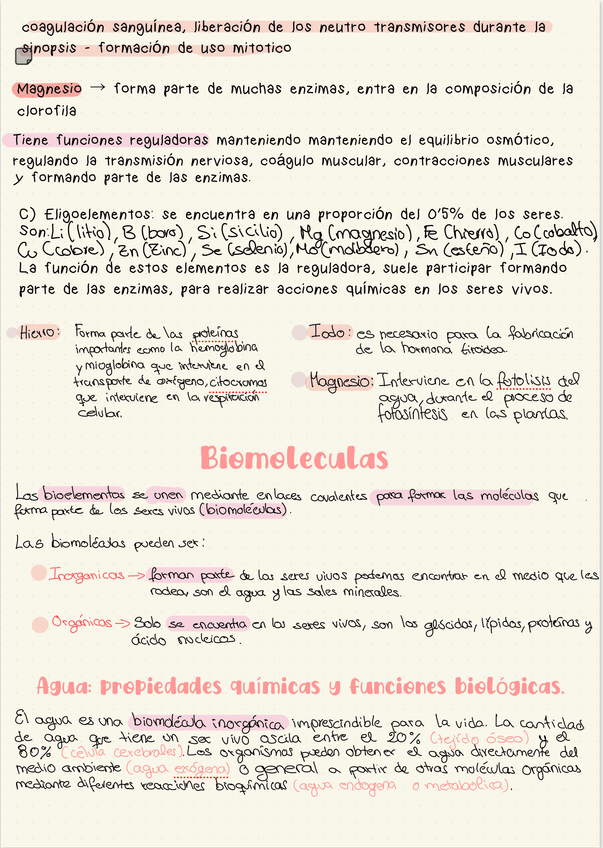 coagulación sanguínea, liberación de los neutro transmisores durante la
sinopsis - formación de uso mitotico
Magnesio → forma parte de muchas enzimas, entra en la composición de la
clorofila
Tiene funciones reguladoras manteniendo manteniendo el equilibrio osmótico,
regulando la transmisión nerviosa, coágulo muscular, contracciones musculares
y formando parte de las enzimas.
C) Eligoelementos: se encuentra en una proporción del 0'5% de los seres.
Son: Li (litio), B (boro), Si (sicilio), Mg (magnesio), Fe (hierro), Co (cobalto),
Cu (cobre), Zn (Zinc), Se (selenio), Mo (molibdero), Sn (esteño), I (Iodo).
La función de estos elementos es la reguladora, suele participar formando
parte de las enzimas, para realizar acciones químicas en los seres vivos.
Hierro: Forma parte de las proteínas
importantes como la hemoglobina
y mioglobina que interviene en el
transporte de oxígeno, citocromos
que interviene en la respiración
celular.
Iodo: es necesario para la fabricación
de la hormona tiroidea.
Magnesio: Interviene en la fotolisis del
agua, durante el proceso de
fotosíntesis en las plantas.
Biomoleculas
Los bioelementos se unen mediante enlaces covalentes para formar las moléculas que
forma parte de los seres vivos (biomoléculas).
Las biomoléculas pueden ser:
Inorganicas → forman parte de los seres vivos podemos encontrar en el medio que les
rodea, son el agua y las sales minerales.
Orgánicas → Solo se encuentra en los seres vivos, son los glúcidos, lípidos, proteínas y
ácido nucleicos.
Agua: propiedades químicas y funciones biológicas.
El agua es una biomolécula inorgánica imprescindible para la vida. La cantidad
de agua que tiene un ser vivo oscila entre el 20% (tejido óseo) y el
80% (célula cerebrales). Los organismos pueden obtener el agua directamente del
medio ambiente (agua exógena) o general a partir de otras moléculas orgánicas
mediante diferentes reacciones bioquímicas (agua endogena o metabólica).